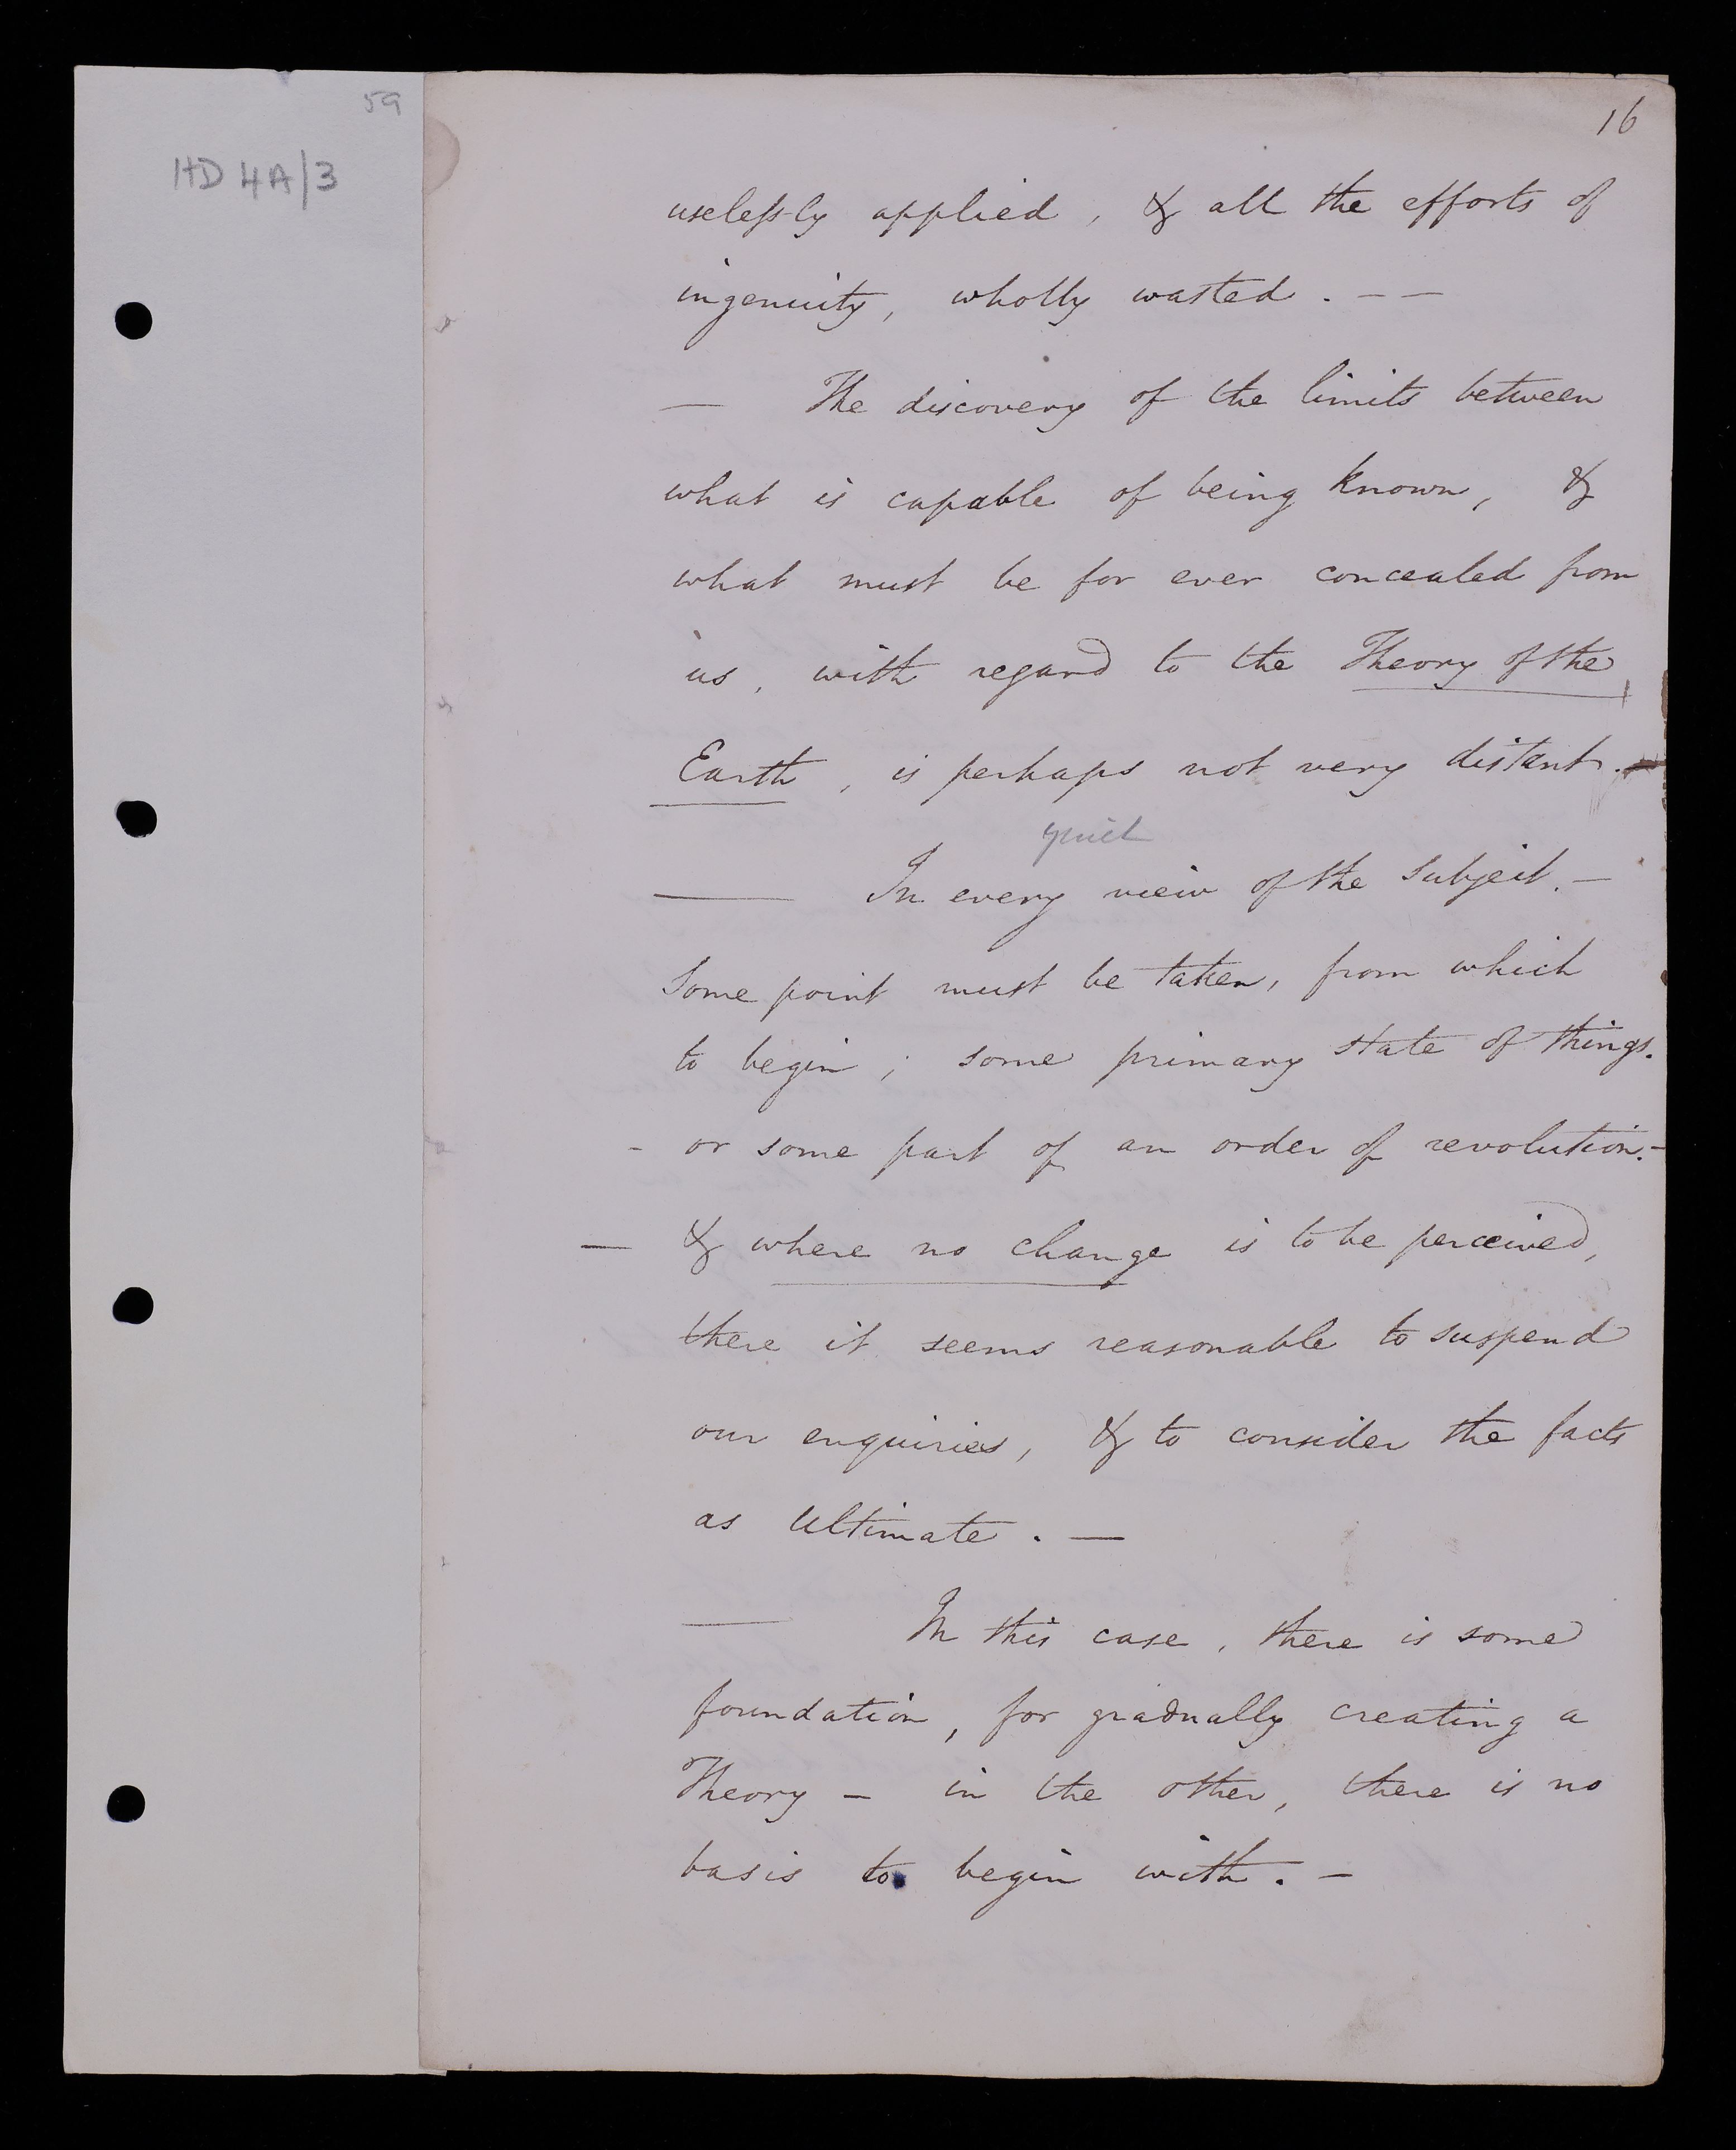 59
HD 4A/3
16
uselessly applied, & all the efforts of
ingenuity, wholly wasted. — —
— The discovery of the limits between
what is capable of being known, &
what must be for ever concealed from
us, with regard to the Theory of the
Earth, is perhaps not very distant. —
— In every view of the subject. —
some point must be taken, from which
to begin; some primary state of things.
- or some part of an order of revolution. -
— & where no change is to be perceived,
there it seems reasonable to suspend
our enquiries, & to consider the facts
as ultimate. —
— In this case, there is some
foundation, for gradually creating a
Theory — in the other, there is no
basis to begin with. —